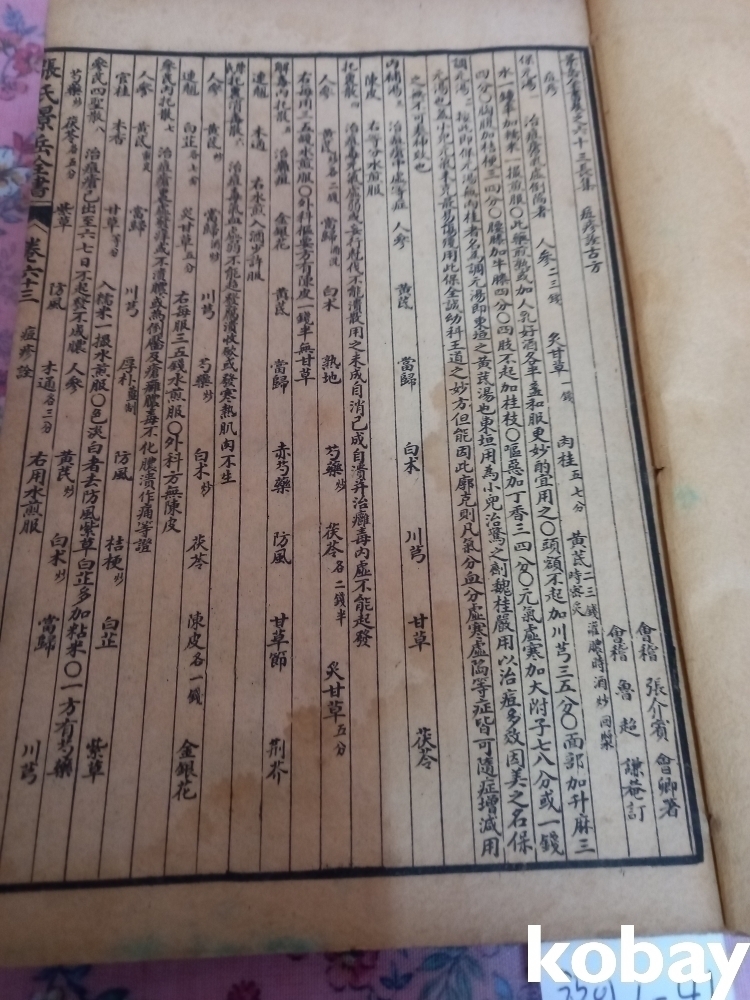 景岳全書卷之六十三長集 痘疹詮古方
會稽 張介賓 會卿著
會稽 魯超 謙菴訂
痘疹
保元湯一 治痘瘡氣虛倒陷者 人參二三錢 炙甘草一錢 肉桂五七分 黃芪二三錢灌膿時酒炒回漿時蜜炙
水一鍾半加糯米一撮煎服〇此藥煎熟或加人乳好酒各半盞和服更妙酌宜用之〇頭額不起加川芎三五分〇面部加升麻三
四分〇胸腹加桔梗三四分〇腰膝加牛膝四分〇四肢不起加桂枝〇嘔惡加丁香三四分〇元氣虛寒加大附子七八分或一錢
調元湯二 按此即保元湯無肉桂者名為調元湯即東垣之黃芪湯也東垣用為小兒治驚之劑魏桂嚴用以治痘多效因美之名保
元湯也蓋小兒元氣未充最易傷殘用此保全誠幼科王道之妙方但能因此廓充則凡氣分血分虛寒虛陷等症皆可隨症增減用
之無不可
內補湯三 治痘瘡中虛等症 人參 黃芪 當歸 白朮 川芎 甘草 茯苓
陳皮 右等分水煎服
托裏散四 治痘毒元氣虛弱或行尅伐不能潰散用之未成自消已成自潰并治癰毒內虛不能起發
人參 黃芪各二錢 當歸酒洗 白朮 熟地 芍藥炒 茯苓各二錢半 炙甘草五分
右每用三五錢水煎服〇外科樞要方有陳皮一錢半無甘草
解毒內托散五 治癰疽 金銀花 黃芪 當歸 赤芍藥 防風 甘草節 荊芥
連翹 木通 右水煎入酒少許服
托裏消毒散六 治痘毒氣血虛弱不能起發腐潰收斂或發寒熱肌肉不生
人參 黃芪炒 當歸酒炒 川芎 芍藥炒 白朮炒 茯苓 陳皮各一錢 金銀花
連翹 白芷各七分 炙甘草五分 右每服三五錢水煎服〇外科方無陳皮
參芪內托散七 治痘瘡裏虛發癢或不潰膿或為倒靨及瘡癰膿毒不化膿潰作痛等證
人參 黃芪蜜炙 當歸 川芎 厚朴薑制 防風 桔梗炒 白芷 紫草
官桂 木香 甘草等分 入糯米一撮水煎服〇色淡白者去防風紫草白芷多加粘米〇一方有芍藥
參芪四聖散八 治痘瘡已出至六七日不起發不成膿 人參 黃芪炒 白朮炒 當歸 川芎
芍藥炒 茯苓各五分 紫草 防風 木通各三分 右用水煎服
張氏景岳全書 卷六十三 痘疹詮
kobay